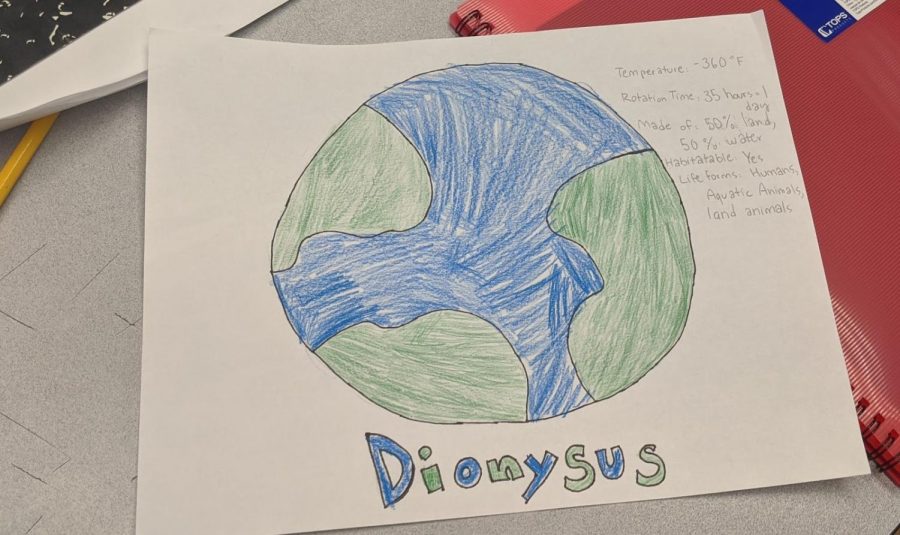 TOPS
Temperature: -360°F
Rotation Time: 35 hours = 1
day
Made of: 50% land,
50%: water
Habitatable: Yes
Life forms: Humans,
Aquatic Animals,
land animals
Dionysus